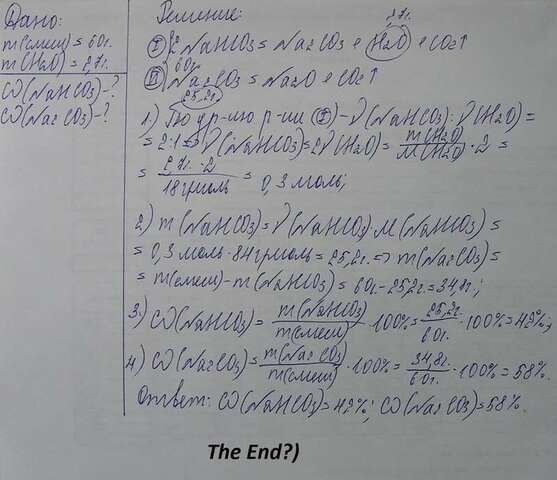 Дано:
m(смеси) = 60г.
m(H2O) = 2,7г.
ω(NaHCO3)-?
ω(Na2CO3)-?
Решение:
2,7г.
I 2NaHCO3 = Na2CO3 + H2O + CO2↑
60г.
II Na2CO3 = Na2O + CO2↑
25,2г.
1.) По ур-ию р-ии (I) - ν(NaHCO3) : ν(H2O) =
= 2:1 => ν(NaHCO3) = 2ν(H2O) = m(H2O)/M(H2O) · 2 =
= 2,7г. · 2 / 18г/моль = 0,3 моль;
2) m(NaHCO3) = ν(NaHCO3) · M(NaHCO3) =
= 0,3 моль · 84г/моль = 25,2г. => m(Na2CO3) =
= m(смеси) - m(NaHCO3) = 60г. - 25,2г. = 34,8г.;
3.) ω(NaHCO3) = m(NaHCO3)/m(смеси) · 100% = 25,2г/60г. · 100% = 42%;
4) ω(Na2CO3) = m(Na2CO3)/m(смеси) · 100% = 34,8г./60г. · 100% = 58%.
Ответ: ω(NaHCO3) = 42%; ω(Na2CO3) = 58%.
The End?)